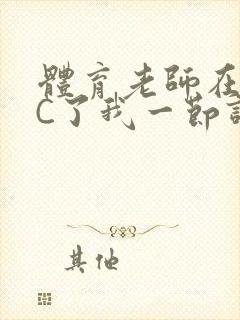 體育老師在
C了我一節
其他